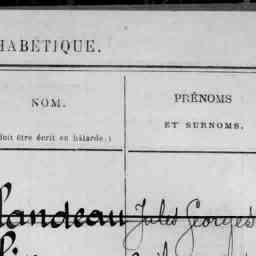 HABÉTIQUE.
NOM.
PRÉNOMS
ET SURNOMS.
doit être écrit en bâtarde.)
landeau Jules Georges